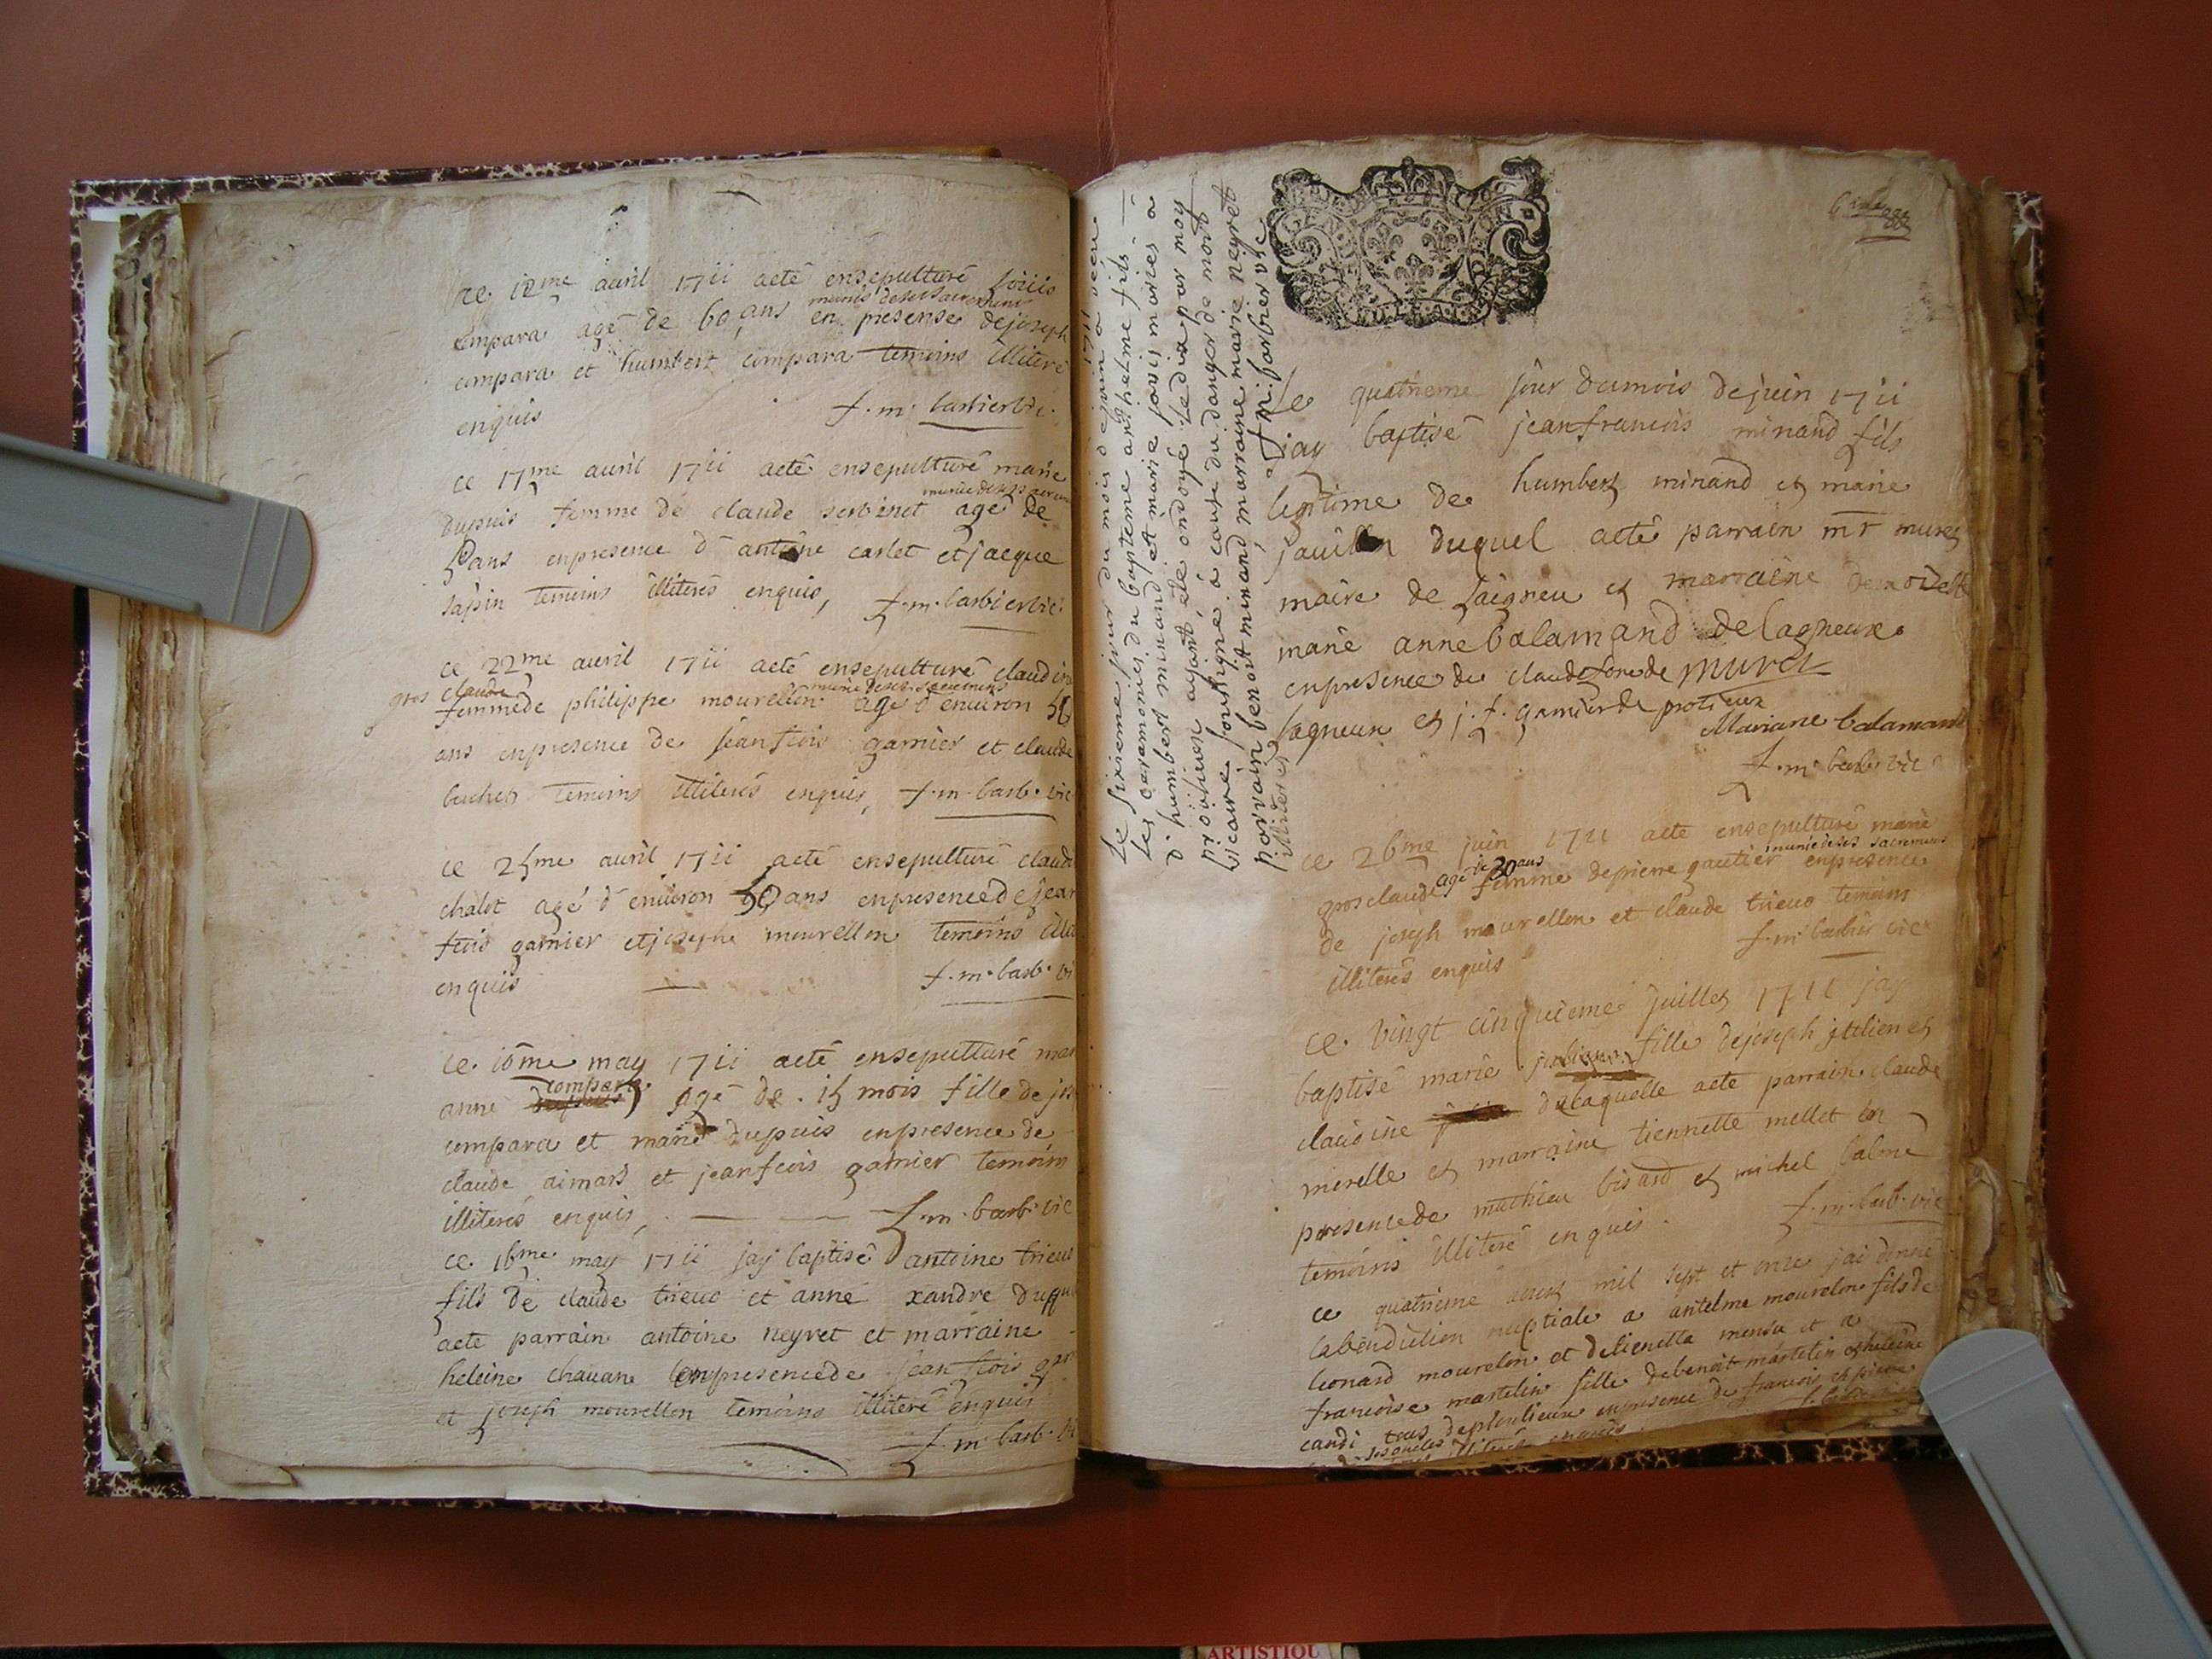 ce 12me auril 1711 acté ensepulturé loüis
compara agé de 60 ans en presense dejoseph
munis de ses sacremens
compara et humbert compara temoins illiteré
enquis f.m. barbier vic.
ce 17me auril 1711 acté ensepulturé marie
dupuis femme de claude serbinet agé de
munie de ses sacrem
ans enpresence d'antoine carlet et jacque
sapin temoins illiterés enquis, f.m. barbier vic.
ce 22me auril 1711 acté ensepulturé claudine
gros claude
femmede philippe mourellon agé d'enuiron 56
munie de ses sacremens
ans enpresence de jean fcois garnier et claude
temoins illiterés enquis, f.m. barb. vic
ce 25me auril 1711 acté ensepulturé claude
chalot agé d'enuiron 50 ans enpresencede jean
fcois garnier et josephe mourellon temoins
enquis f.m. barb. vi
ce 10me may 1711 acté ensepulturé mar
anne compara agé de 15 mois fille de jos
compara et marie dupuis enpresence de
claude aimard et jeanfcois garnier temoins
illiterés enquis, f.m. barb. vic
ce 16me may 1711 jay baptisé antoine trieuo
fils de claude trieuo et anne xandre duquel
acte parrain antoine neyret et marraine
heleine chauane enpresencede jean fcois gar
et joseph mourellon temoins illiteré enquis
f.m. barb. vi
Le sixieme jour du mois de juin a receu
1711
les ceremonies du bapteme anthelme fils
d'humbert minand et marie jouis mariés à
proülieu ayant été ondoyé ledia par moy
vicaire soussigné à cause du danger de mort
parrain benoit minand, marraine marie neyret
illiterés f.m. barbier vic
le quatrieme jour dumois dejuin 1711
jay baptisé jeanfrancois minand fils
legitime de humbert minand et marie
duquel acté parrain mr muret
maire de laigneu et marraine demoiselle
marie anne balamand de lagneux
enpresence de claude de muret
lagneux et j.f. garnier de prolieux
Mariane balamand
f.m. barb. vic
ce 26me juin 1711 acte ensepulturé marie
grosclaude agé de 30 ans femme depierre gautier enpresence
munie de ses sacremens
de joseph mourellon et claude trieuo temoins
illiterés enquis f.m. barbier vic
ce vingt cinquieme juillet 1711 jay
baptisé marie fille dejoseph et
claudine delaquelle acte parrain claude
merelle et marraine tiennette mellet en
presencede mathieu bisard et michel balme
temoins illiteré enquis. f.m. barb. vic
ce quatrieme aoust mil sept et onze jai donné
labenediction nuptiale a antelme mourelon fils de
leonard mourelon et detienette mensu et a
francoise martelin fille debenoit martelin et heleine
candi tous deploulieux enpresence de francois et pierre
illiterés enquis